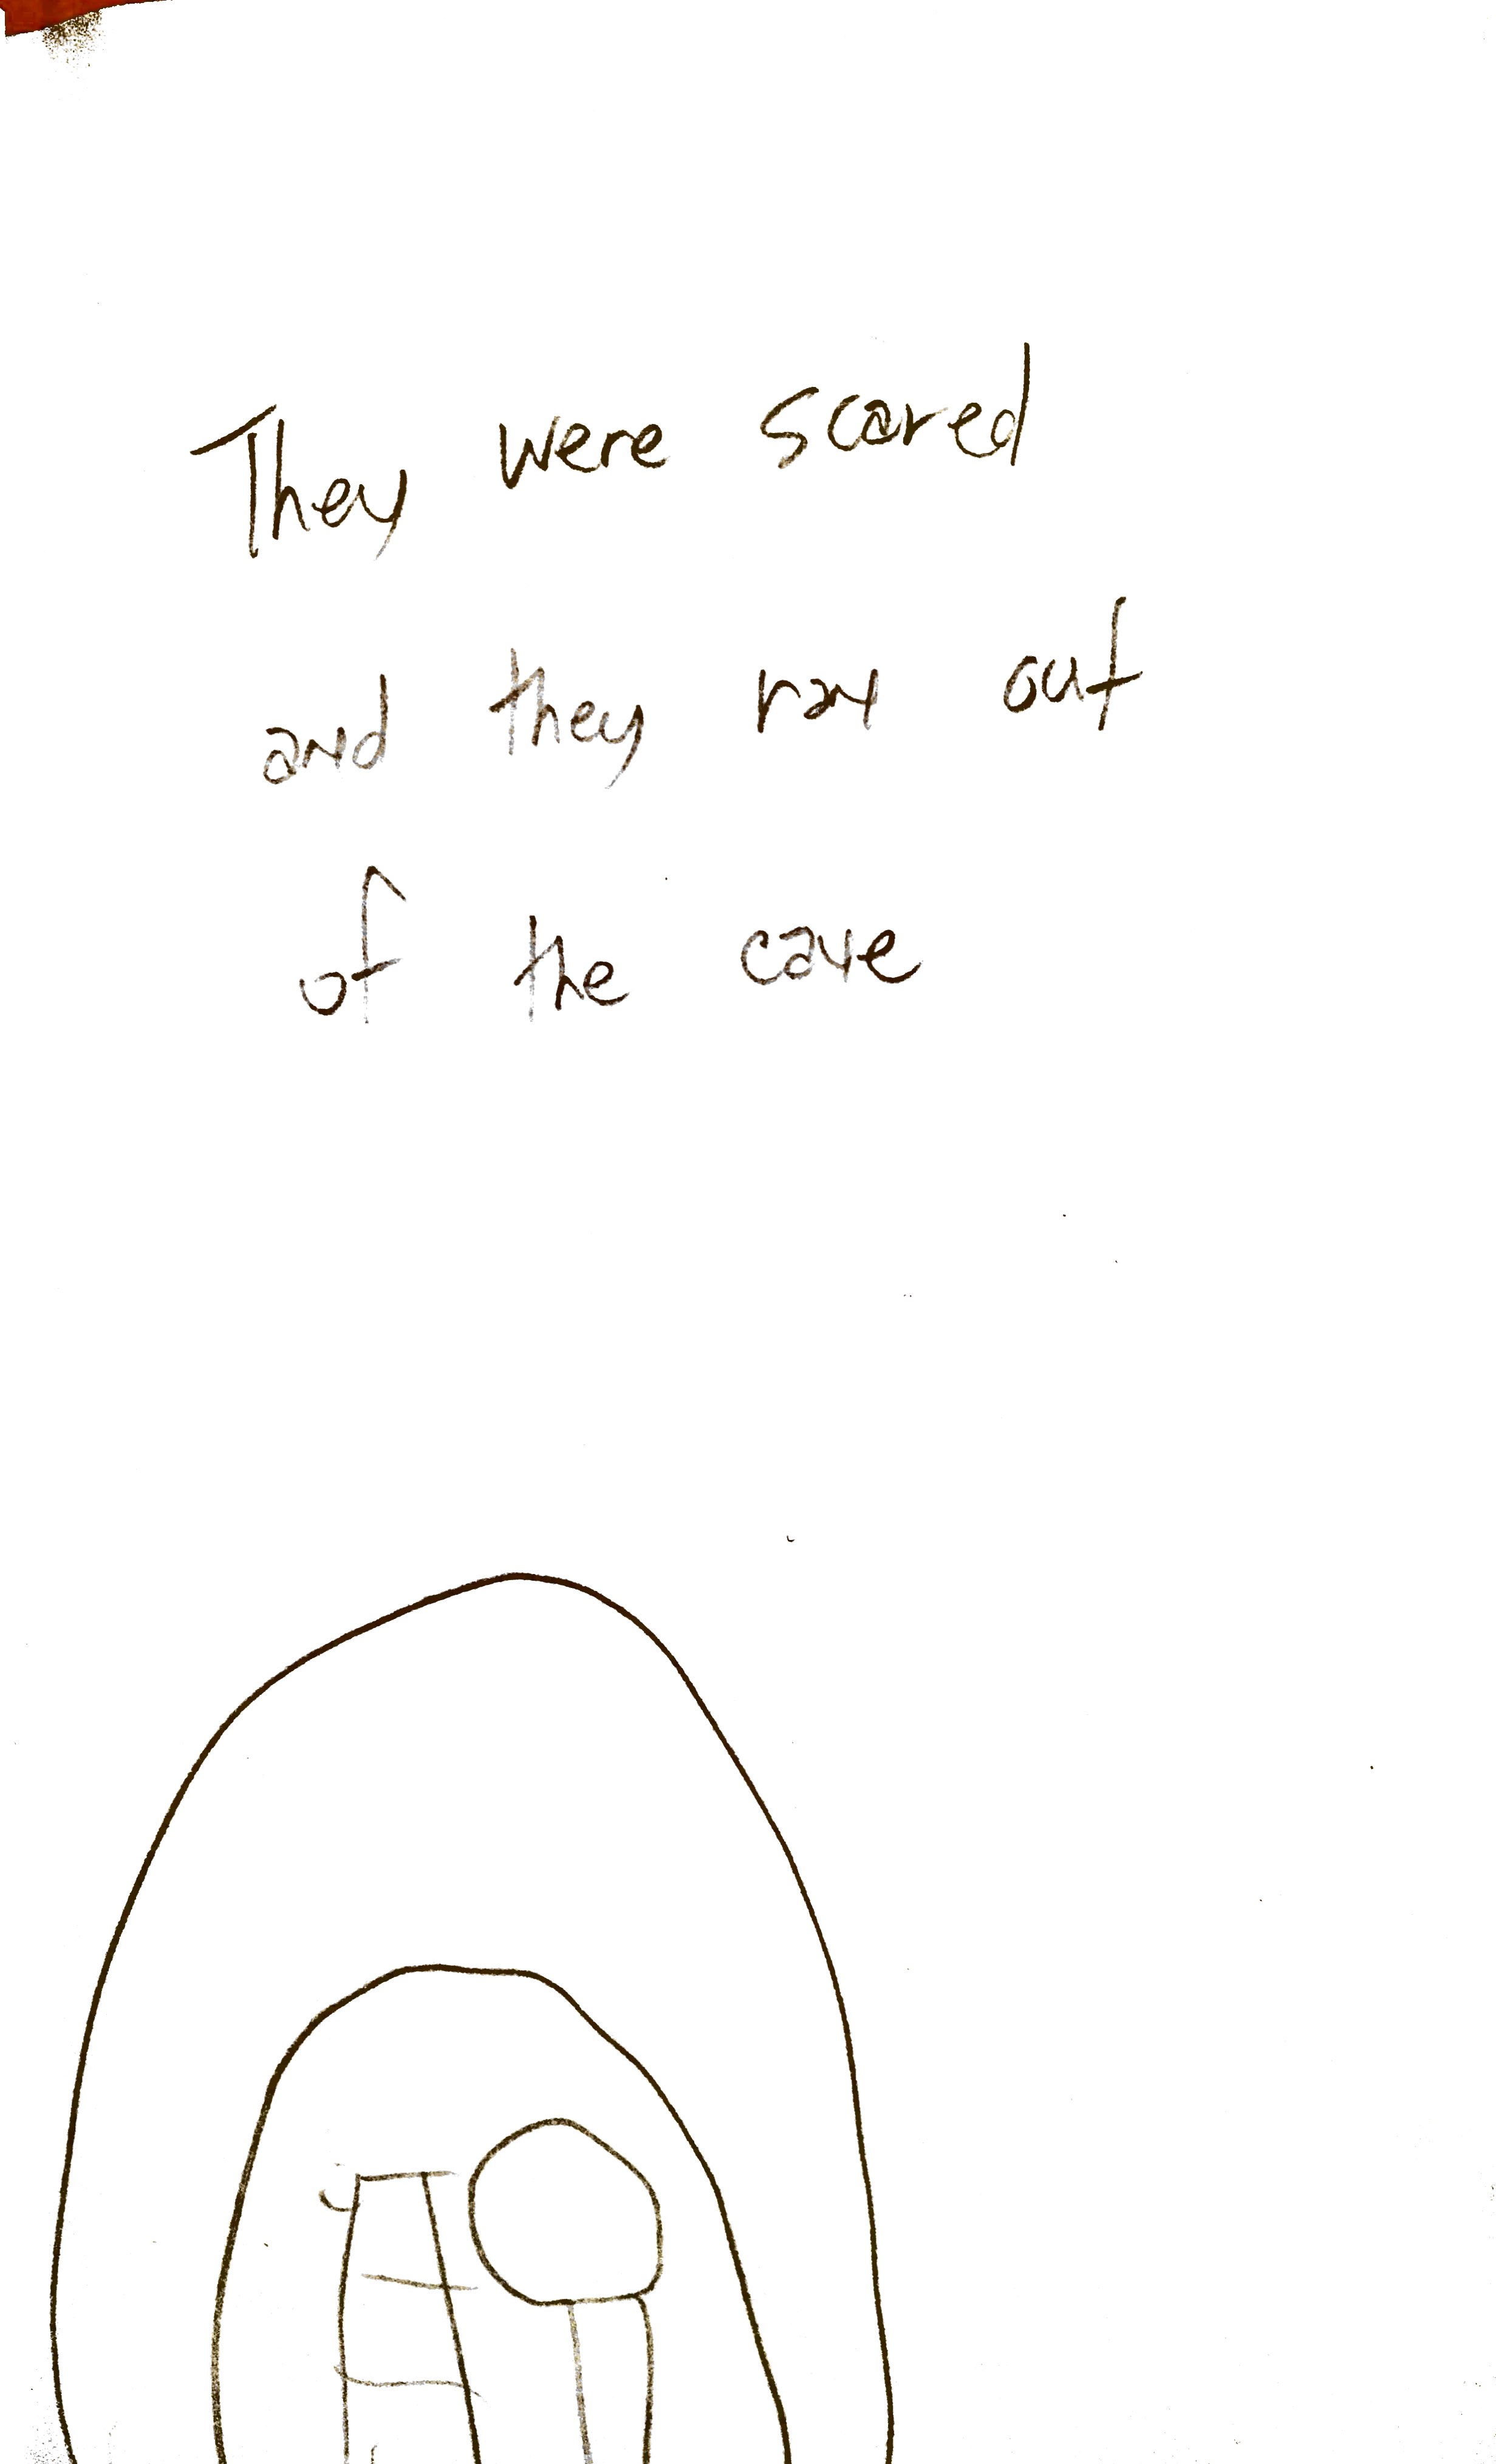 They were scared
and they ran out
of the cave